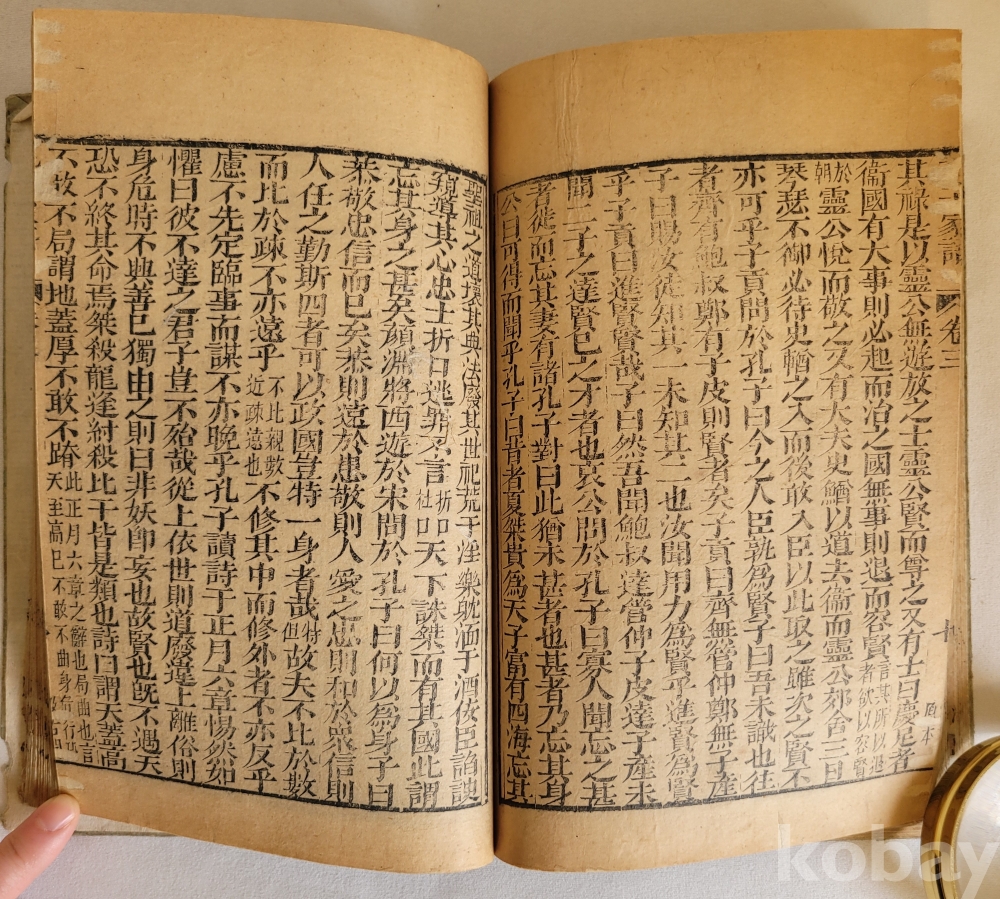 子家語 卷三 十
其祿是以靈公無遊放之士靈公賢而尊之又有士曰慶足者
衞國有大事則必起而治之國無事則退而容賢言其所以退者欲以容賢
於朝靈公悅而敬之又有大夫史鰌以道去衞而靈公郊舍三日
琴瑟不御必待史鰌之入而後敢入臣以此取之雖次之賢不
亦可乎子貢問於孔子曰今之人臣孰為賢子曰吾未識也往
者齊有鮑叔鄭有子皮則賢者矣子貢曰齊無管仲鄭無子產
子曰賜汝徒知其一未知其二也汝聞用力為賢乎進賢為賢
乎子貢曰進賢賢哉子曰然吾聞鮑叔達管仲子皮達子產未
聞二子之達賢已之才者也哀公問於孔子曰寡人聞忘之甚
者徙而忘其妻有諸孔子對曰此猶未甚者也甚者乃忘其身
公曰可得而聞乎孔子曰昔者夏桀貴為天子富有四海忘其
聖祖之道壞其典法廢其世祀荒于淫樂躭湎于酒佞臣諂諛
窺導其心忠士折口逃罪不言折口杜口天下誅桀而有其國此謂
忘其身之甚矣顏淵將西遊於宋問於孔子曰何以為身子曰
恭敬忠信而已矣恭則遠於患敬則人愛之忠則和於眾信則
人任之勤斯四者可以政國豈特一身者哉特但故夫不比於數
而比於疎不亦遠乎不比親數近疎遠也不修其中而修外者不亦反乎
慮不先定臨事而謀不亦晚乎孔子讀詩于正月六章惕然如
懼曰彼不達之君子豈不殆哉從上依世則道廢違上離俗則
身危時不興善已獨由之則曰非妖即妄也故賢也既不遇天
恐不終其命焉桀殺龍逢紂殺比干皆是類也詩曰謂天蓋高
不敢不局謂地蓋厚不敢不蹐此正月六章之辭也局曲也言天至高已不敢不曲身
kobay